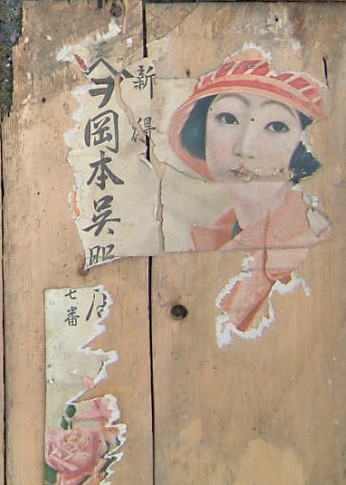 新得
ヲ岡本呉服店
七番